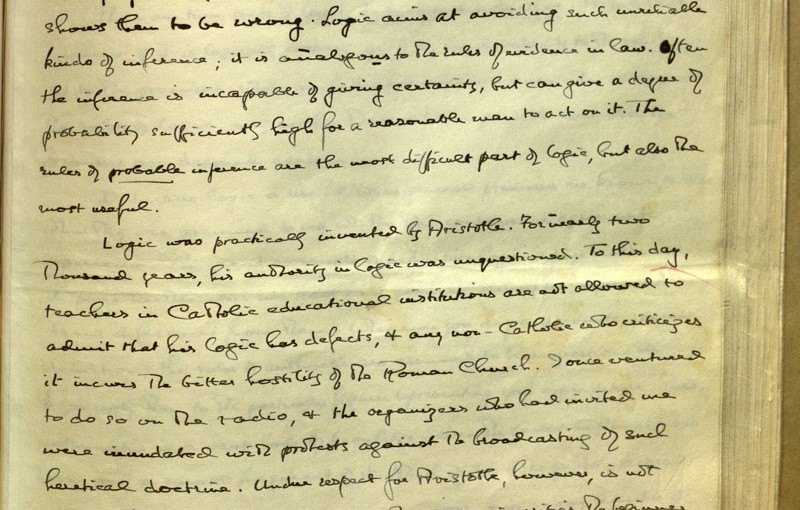 shows them to be wrong. Logic aims at avoiding such unreliable
kinds of inference; it is analogous to the rules of evidence in law. Often
the inference is incapable of giving certainty, but can give a degree of
probability sufficiently high for a reasonable man to act on it. The
rules of probable inference are the most difficult part of logic, but also the
most useful.
Logic was practically invented by Aristotle. For nearly two
thousand years, his authority in logic was unquestioned. To this day,
teachers in Catholic educational institutions are not allowed to
admit that his logic has defects, & any non-Catholic who criticizes
it incurs the bitter hostility of the Roman Church. I once ventured
to do so on the radio, & the organizers who had invited me
were inundated with protests against the broadcasting of such
heretical doctrine. Undue respect for Aristotle, however, is not
the beginner